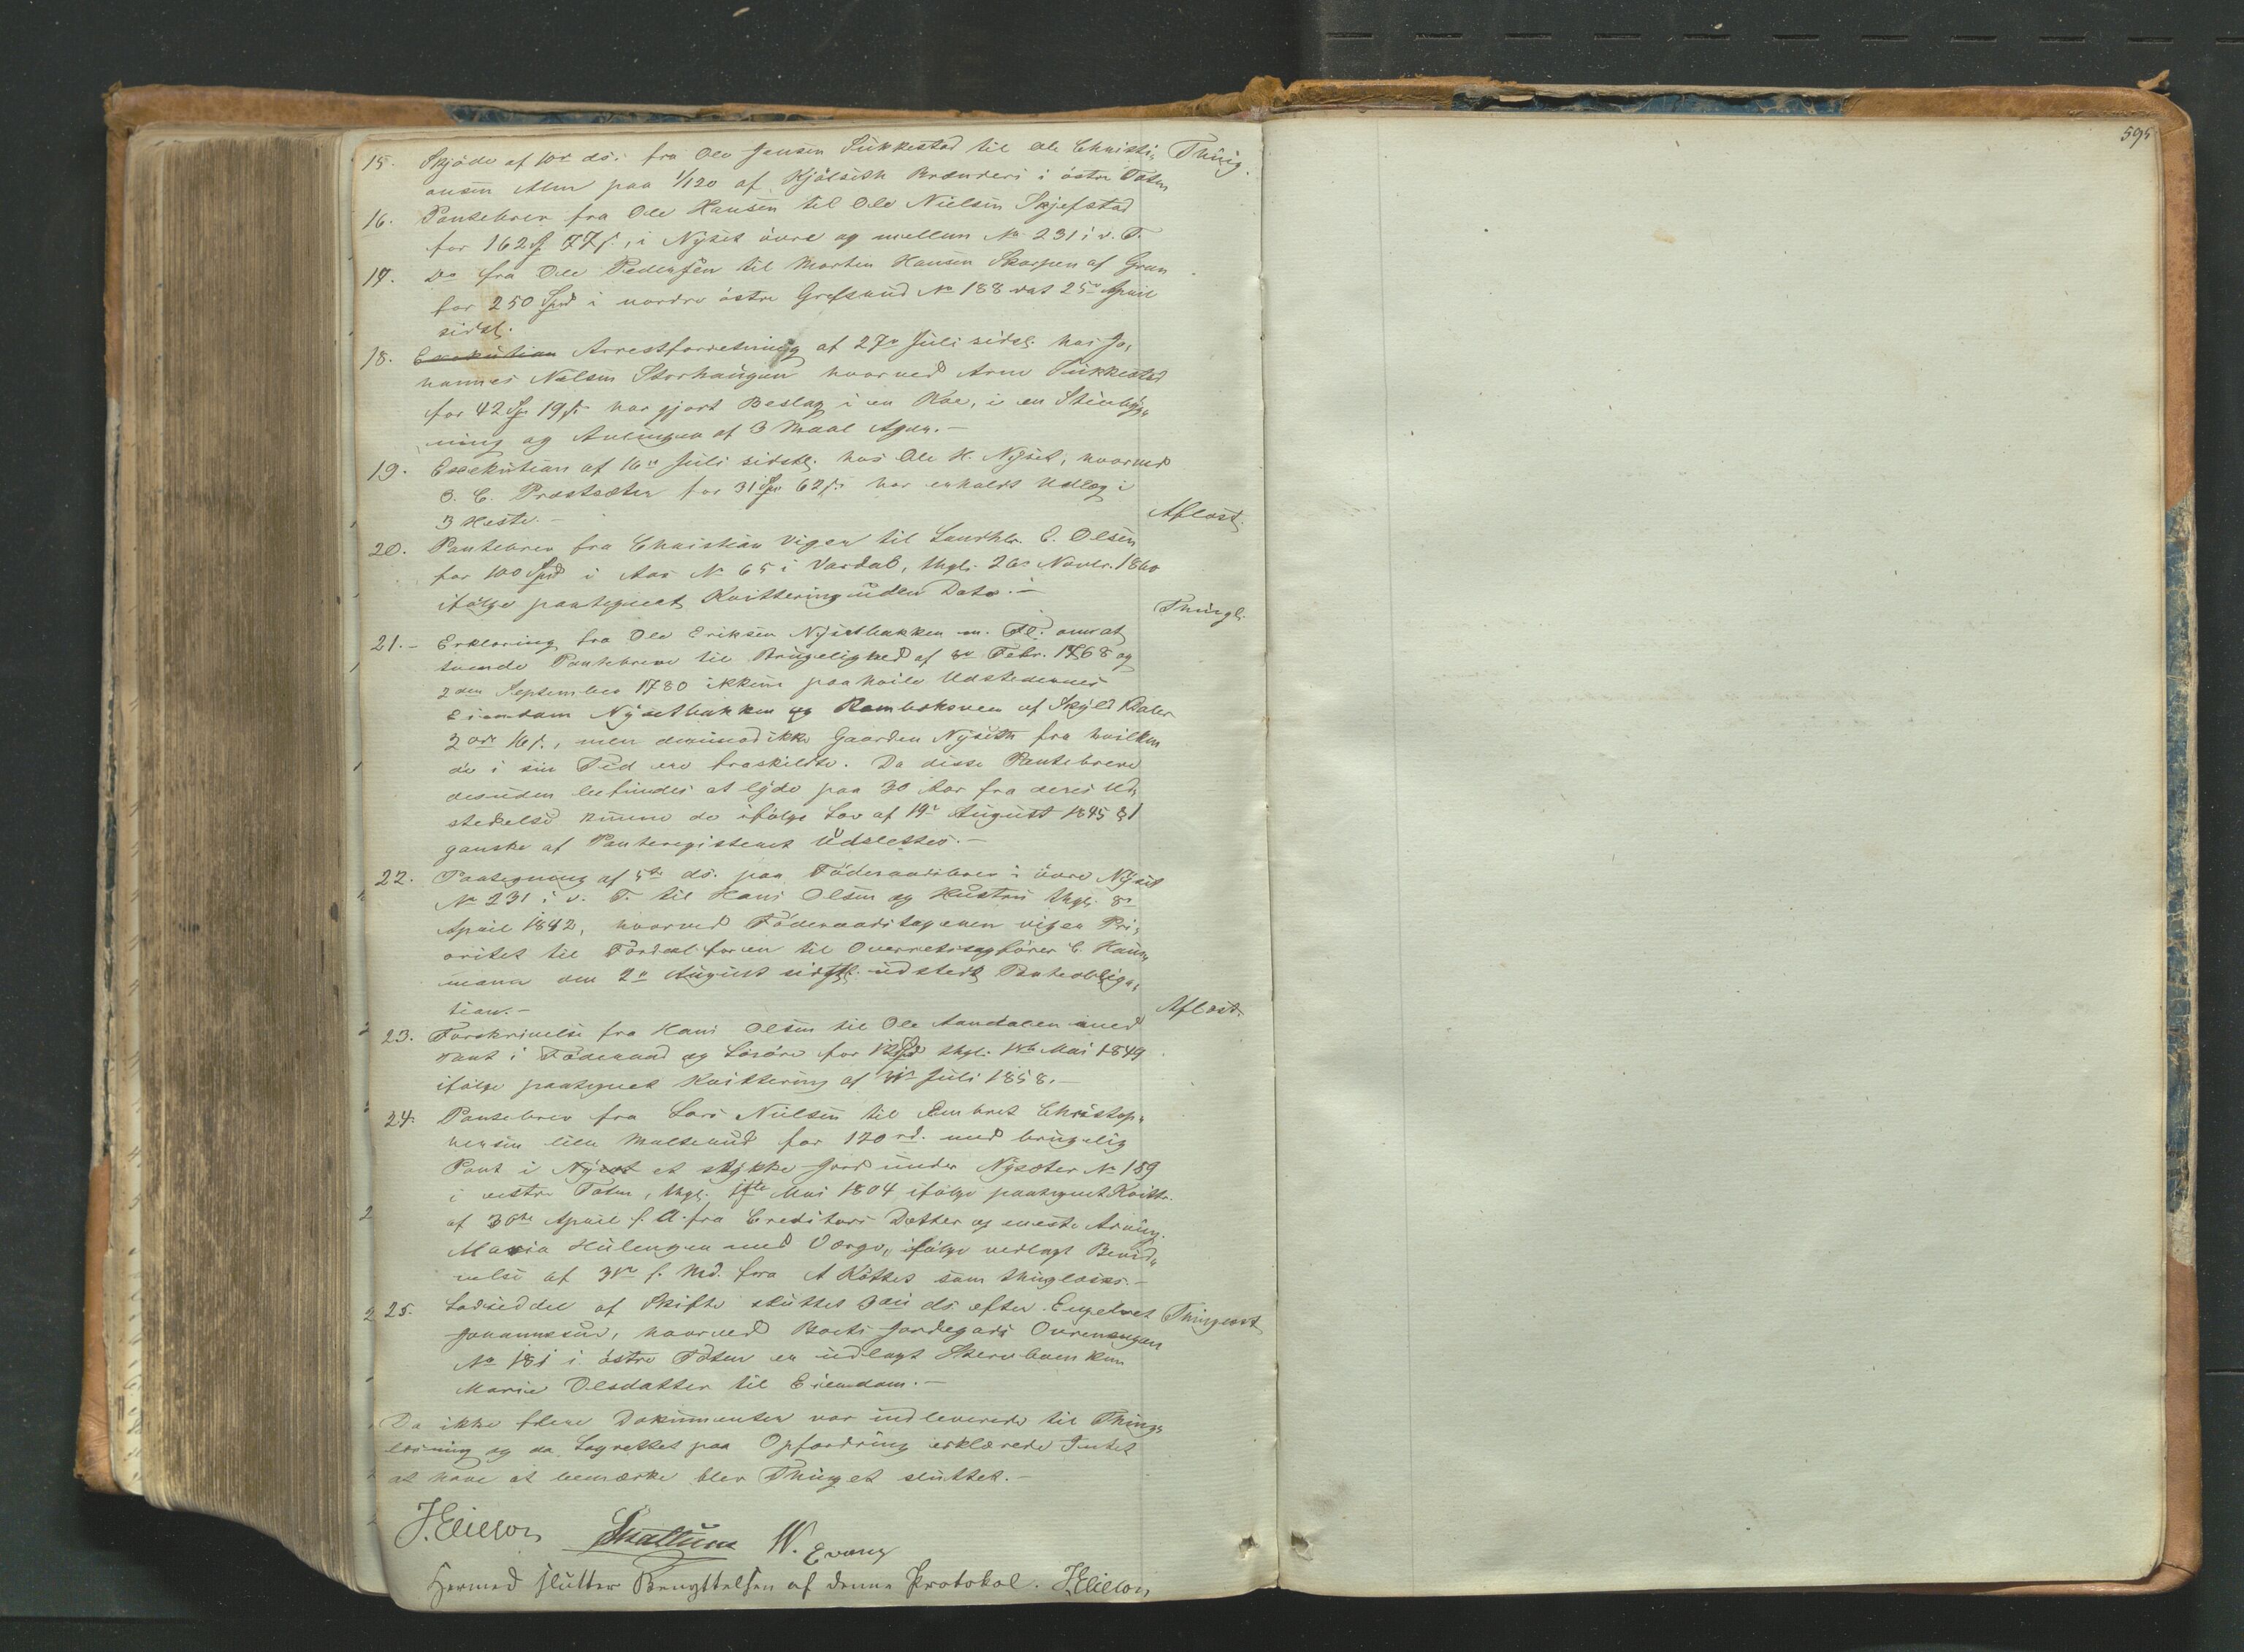 595
15. Skjøde af 10de ds. fra Ole Jensen Sukkestad til Ole Christi- Thing.
ansen Alm paa 1/120 af Kjølseth Brænderi i østre Toten
16. Pantebrev fra Ole Hansen til Ole Nielsen Skjefstad
for 162 Sp 77 s., i Nyset øvre og mellem No 231 i v. T.
17. Do fra Ole Pedersen til Morten Hansen Skarpen af Gran
for 250 Spd i nordre østre Grefsrud No 188 dat 25de April
sidstl.
18. Execution Arrestforretning af 27de Juli sidstl. hos Jo-
hannes Nelsen Storhaugen hvorved Arne Sukkestad
for 42 Sp 19 s. har gjort Beslag i en Koe, i en Stuebyg-
ning og Avlingen af 3 Maal Ager.-
19. Exekution af 16de Juli sidstl. hos Ole H. Nyset, hvorved
O. C. Prestsæter for 31 Sp 62 s. har erholdt Udlæg i
3 Heste.- Aflæst.
20. Pantebrev fra Christian Vigen til Landhdlr. E. Olsen
for 100 Spd i Aas No 65 i Vardal, thgl. 26de Novbr. 1860
ifølge paategnet Kvittering uden Dato.-
Thingl.
21.- Erklæring fra Ole Eriksen Nysetbakken m. Fl. om at
tvende Pantebreve til Brugelighed af 8de Febr. 1768 og
2den September 1780 ikkun paahvile Udstedernes
Eiendom Nysetbakken og Rambekoven af Skyld Daler
2 ort 16 s., men derimod ikke Gaarden Nyseth fra hvilken
de i sin Tid ere fraskildte. Da disse Pantebreve
desuden befindes at lyde paa 30 Aar fra deres Ud-
stedelse kunne de ifølge Lov af 19de August 1845 § 1
ganske af Panteregisteret Udslettes.-
22. Paategning af 5te ds. paa Føderaadsbrev i øvre Nyset
No 231 i v. T. til Hans Olsen og Hustru thgl. 8de
April 1842, hvorved Føderaadstageren viger Pri-
oritet til Fordeel for en til Overretssagfører C. Haum-
mann den 2de August sidstl. udstedt Panteobliga-
tion.- Aflæst.
23. Forskrivelse fra Hans Olsen til Ole Aandalen med
Pant i Føderaad og Løsøre for 12 Spd thgl. 14de Mai 1849
ifølge paategnet Kvittering af 31te Juli 1858.-
24. Pantebrev fra Lars Nielsen til Embret Christop-
hersen lille Malterud for 120 rd. med brugelig
Pant i Nyset et stykke Jord under Nysæter No 189
i vestre Toten, thgl. 1ste Mai 1804 ifølge paategnet Kvittr.
af 30te April f. A. fra Creditors Datter og eneste Arving
Maria Hulengen med Værge, ifølge vedlagt Bevid-
nelse af 31te f. Md. fra A Køttet som thinglæses.-
25. Lodseddel af Skifte sluttet 3die ds. efter Engebret Thinglæst
Johannesen, hvorved Boets Jordegods Overengen
No 181 i østre Toten er udlagt Stervboenken
Marie Olsdatter til Eiendom.-
Da ikke flere Dokumenter var indleverede til Thing-
læsning og da Lagrettet paa Opfordring erklærede Intet
at have at bemærke blev Thinget sluttet.-
J. Ellefsen Skattum W. Evang
Hermed slutter Benyttelsen af denne Protokol. J. Ellefsen